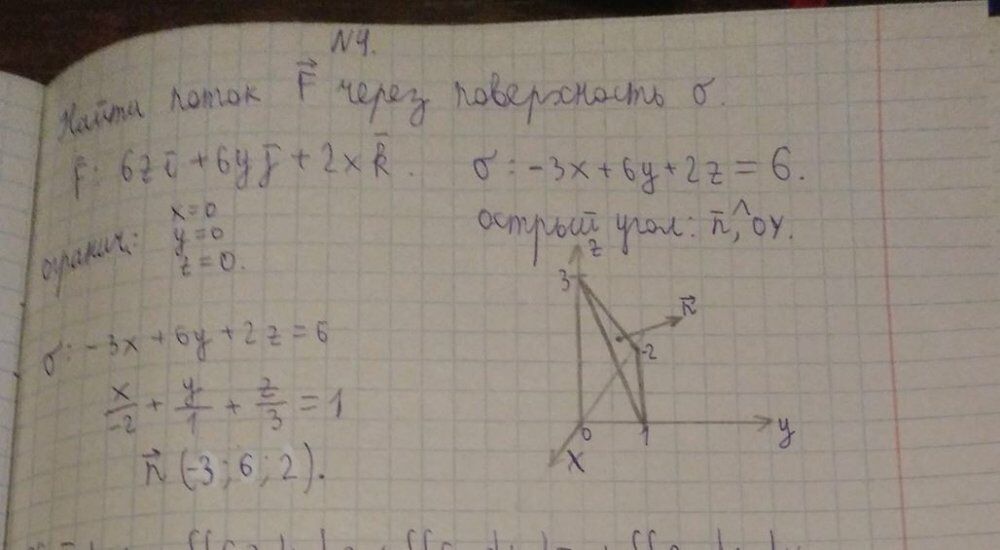 N4.
Найти поток F⃗ через поверхность σ.
F: 6z i̅ + 6y j̅ + 2x k̅.
σ: -3x + 6y + 2z = 6.
огранич.: x=0
y=0
z=0.
острый угол: n̅,^OY.
z
3
n⃗
-2
0
1
y
x
σ: -3x + 6y + 2z = 6
x/-2 + y/1 + z/3 = 1
n⃗ (-3; 6; 2).